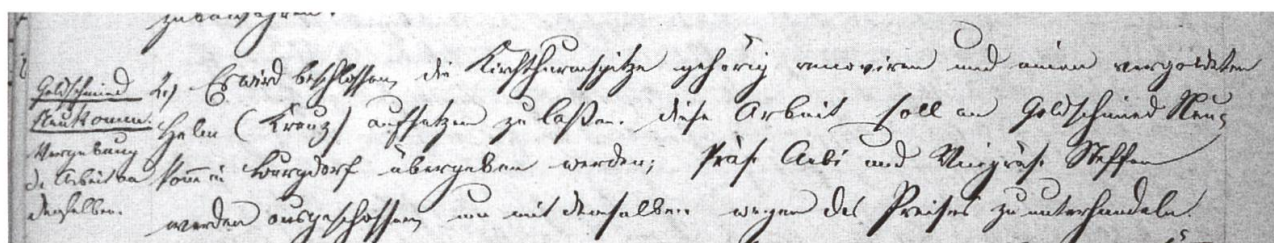 zubewahren.
Goldschmied
Neukomm.
Vergebung
der Arbeit an
denselben.
2.) Es wird beschlossen, die Kirchthurmspitze gehörig renoviren und einen vergoldeten
Helm (Kreuz) aufsetzen zu laßen. Diese Arbeit soll an Goldschmied Neu-
komm in Burgdorf übergeben werden; Präs. Aebi und Vicepräs. Steffen
werden ausgeschossen, um mit demselben wegen des Preises zu unterhandeln.